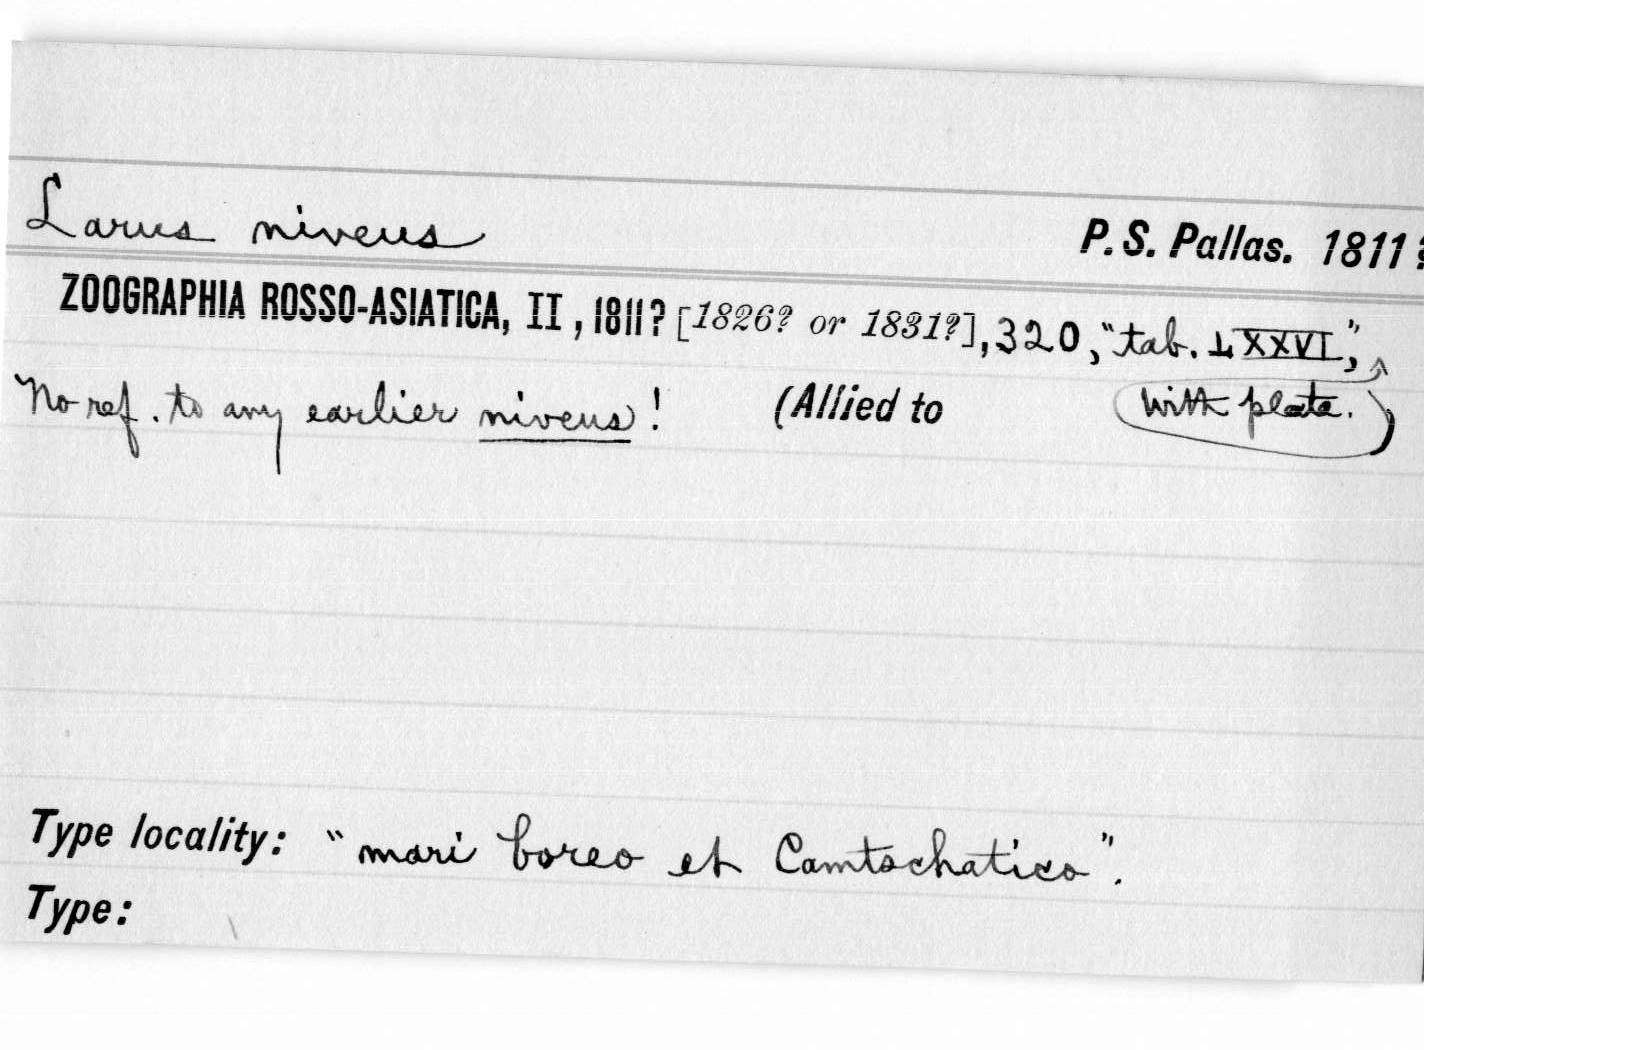 Larus niveus P. S. Pallas. 1811?
ZOOGRAPHIA ROSSO-ASIATICA, II, 1811? [1826? or 1831?], 320, "tab. LXXVI,"
No ref. to any earlier niveus! (Allied to with plate. )
Type locality: "mari boreo et Camtschatico".
Type: